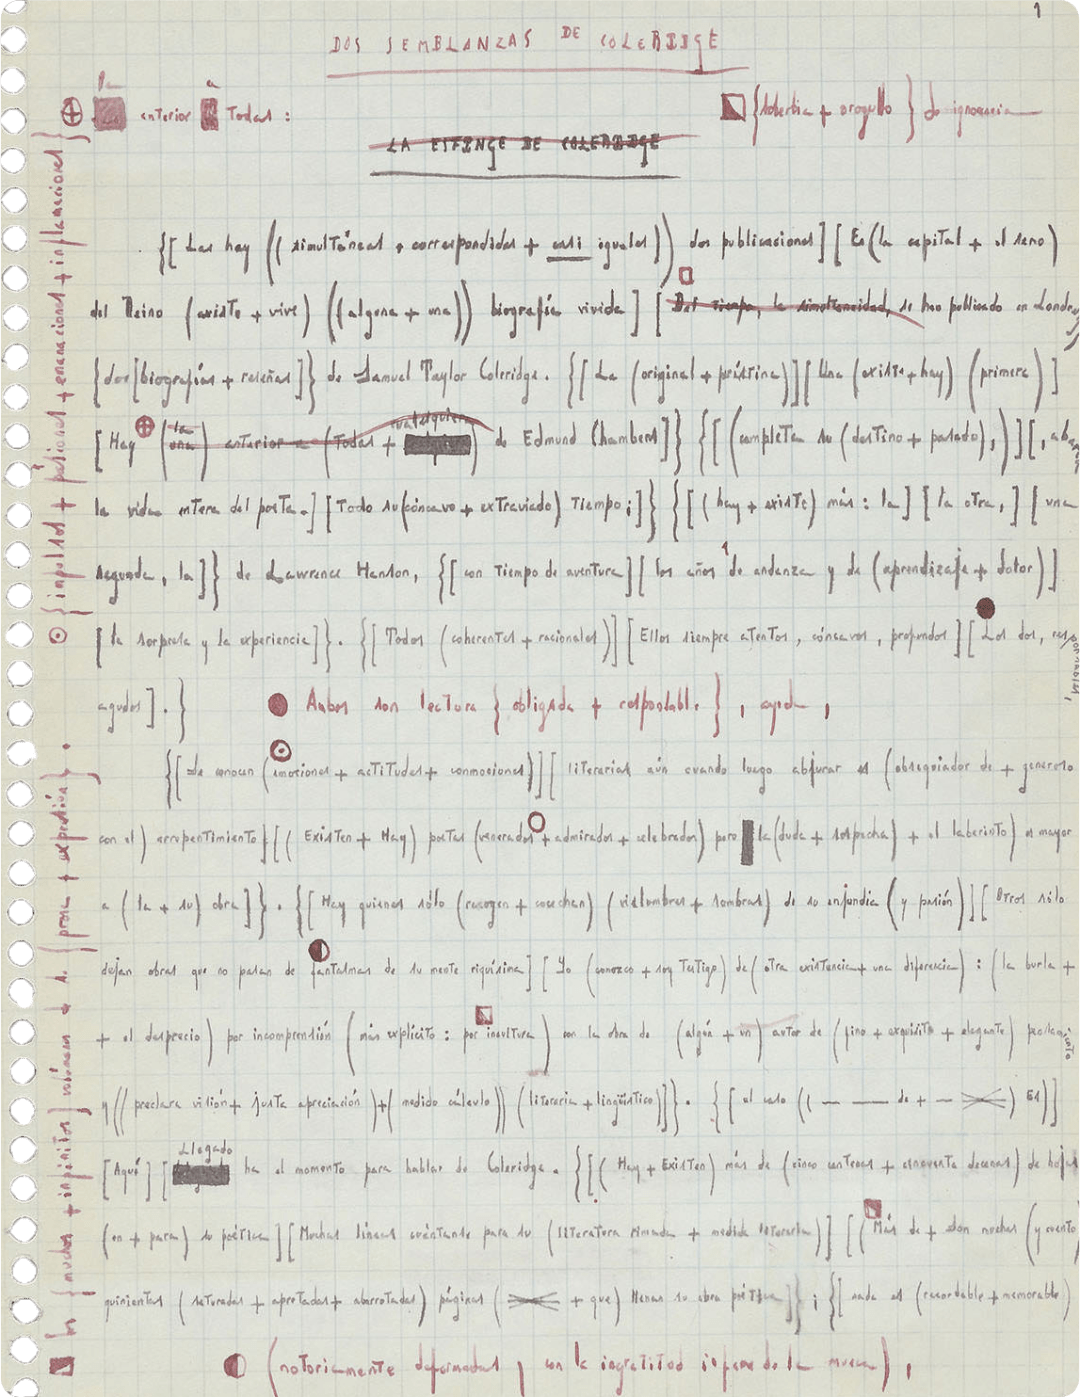 1
DOS SEMBLANZAS DE COLERIDGE
la a
anterior Todas :
{soberbia + orogullo} de ignorancia
LA ESFINGE DE COLERIDGE
{[ Las hay (( simultáneas + correspondidas + casi iguales )) dos publicaciones ] [ En (la capital + el seno)
del Reino (existe + vive) ((alguna + una)) biografía vivida ] [ Del tiempo, la simultaneidad, se han publicado en Londres
{dos [biografías + reseñas]} de Samuel Taylor Coleridge. {[ La (original + prístina)] [ Una (existe + hay) (primera) ]
la cualesquiera
[ Hay (una) anterior a (Todas + ) de Edmund Chambers ]} {[ (completa su (destino + pasado),) ] [, abarca
la vida entera del poeta. ] [ Todo su (cóncavo + extraviado) Tiempo ; ]} {[ (hay + existe) más : la ] [ la otra, ] [ una
segunda, la ]} de Lawrence Hanson, {[ con Tiempo de aventura ] [ los años de andanza y de (aprendizaje + dolor) ]
[ la sorpresa y la experiencia ]}. {[ Todos (coherentes + racionales) ] [ Ellos siempre atentos, cóncavos, profundos ] [ Los dos, responsables,
agudos ]. }
Ambas son lectura { obligada + respetable. } ,
{[ Se conocen (emociones + actitudes + conmociones) ] [ literarias aún cuando luego abjurar es (obsequiador de + generoso
con el) arrepentimiento ] [ ( Existen + Hay) poetas (venerados + admirados + celebrados) pero la (duda + sospecha) + el laberinto) es mayor
a ( la + su) obra ]}. {[ Hay quienes sólo (recogen + cosechan) (vislumbres + sombras) de su enjundia (y pasión) ] [ Otros sólo
dejan obras que no pasan de fantasmas de su mente riquísima ] [ Yo (conozco + soy Testigo) de (otra existencia + una diferencia) : (la burla +
+ el desprecio) por incomprensión (más explícito : por incultura) con la obra de (algún + un) autor de (fino + exquisito + elegante) pensamiento
y (( preclara visión + justa apreciación ) + ( medido cálculo )) (literario + lingüístico) ]}. {[ el caso (( — — de + — ) Es) ]
Llegado
[ Aquí ] [ ha el momento para hablar de Coleridge. {[ ( Hay + Existen) más de (cinco centenas + cincuenta decenas) de hojas
(en + para) su poética ] [ Muchas líneas cuéntanse para su (literatura rimada + medida literaria) ] [ ( Más de + Son muchas (y cuento)
quinientas (saturadas + apretadas + abarrotadas) páginas ( + que) llenan su obra poética ]} ; {[ nada es (recordable + memorable)
(notoriamente deformadas, con la ingratitud de la mueca) ,
{impulsos + pasiones + enunciaciones + inflamaciones}
los {muchos + infinitos} volúmenes de su {prosa + expresión}.